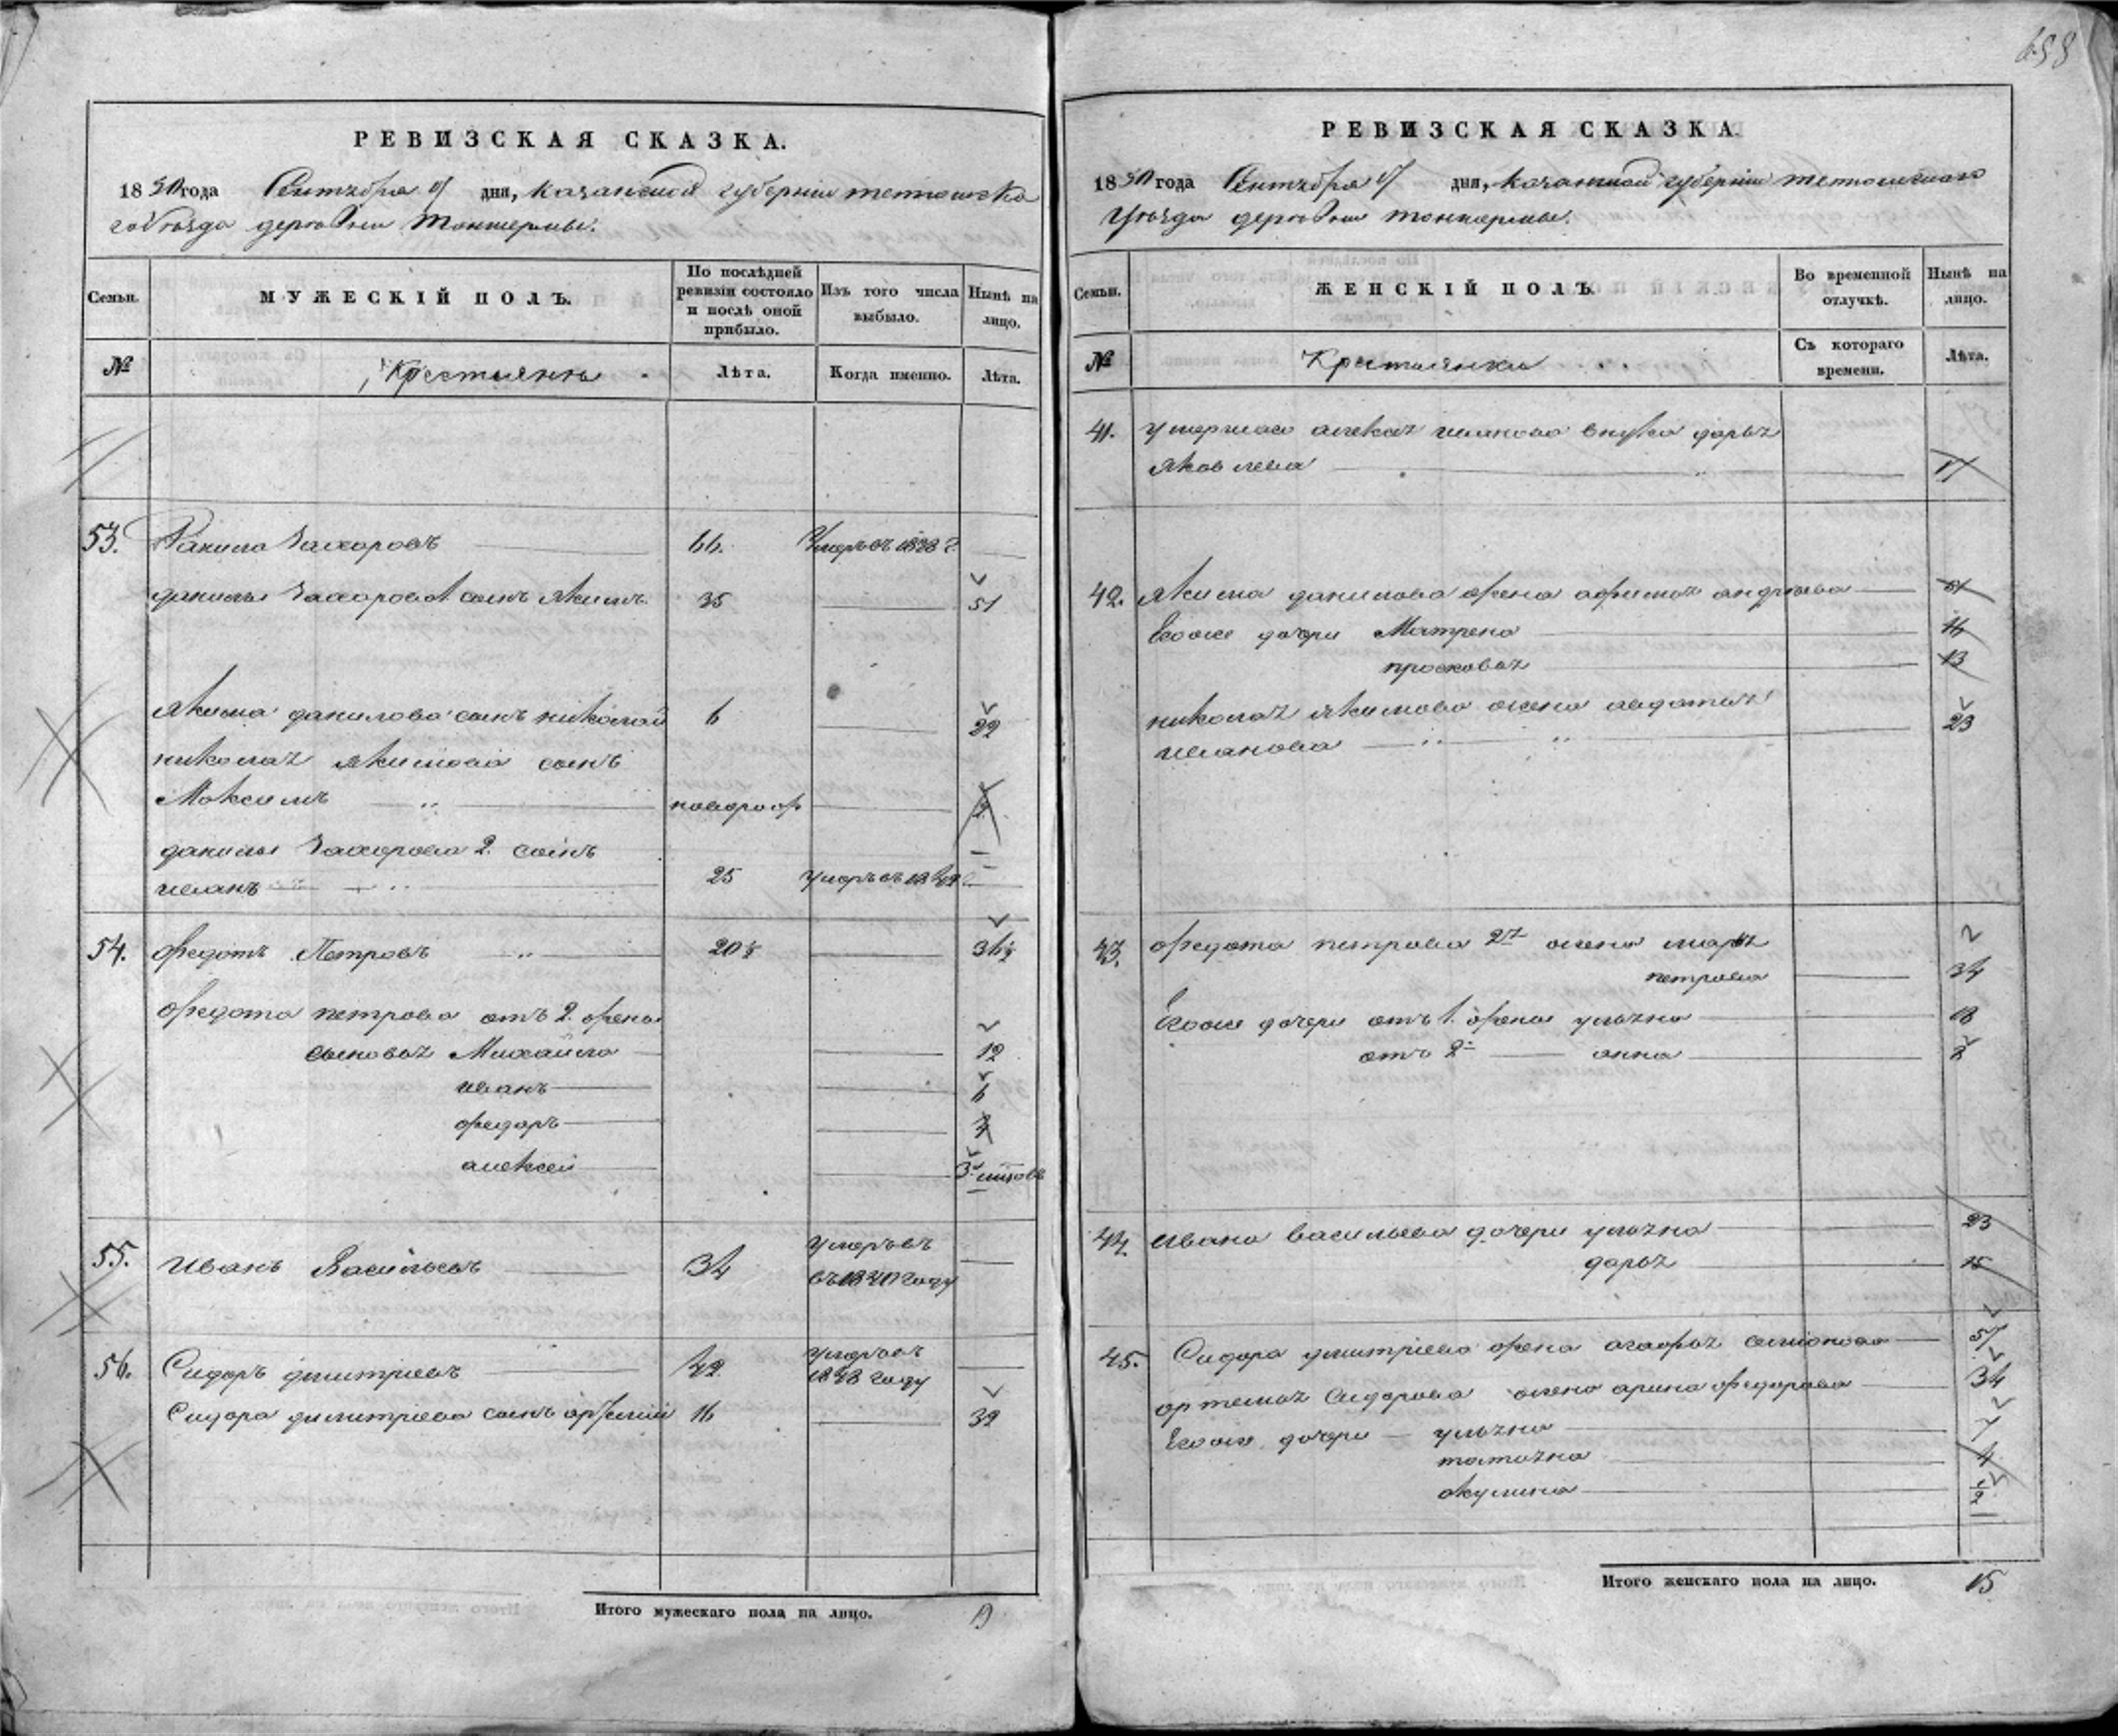 658
РЕВИЗСКАЯ СКАЗКА.
1850 года Сентября дня, Казанской губернии тетюшска
го уезда деревни Тоншермы.
Семьи. МУЖЕСКІЙ ПОЛЪ. По послѣдней ревизіи состояло и послѣ оной прибыло. Изъ того числа выбыло. Нынѣ на лицо.
№ Крестьянъ Лѣта. Когда именно. Лѣта.
53. Данило Захаровъ 66. Умеръ въ 1838 г.
данилы Захарова 1. сынъ Якимъ 35 51
Якима данилова сынъ николай 6 22
николая якимова сынъ
Максимъ новорож
данилы Захарова 2. сынъ
иванъ 25 умеръ въ 1849
54. Федотъ Петровъ 20½ 36½
Федота петрова отъ 2. жены
сыновья Михайло 12
иванъ 6
федоръ
алексей 3
55. Иванъ Васильевъ 34 умеръ въ
въ 1840 году
56. Сидоръ димитриевъ 42 умеръ въ
1848 году
Сидора димитриева сынъ артемий 16 32
Итого мужескаго пола на лицо.
РЕВИЗСКАЯ СКАЗКА.
1850 года Сентября дня, Казанской губернии тетюшскаго
Уезда деревни тоншермы.
Семьи. ЖЕНСКІЙ ПОЛЪ Во временной отлучкѣ. Нынѣ на лицо.
№ Крестьянки Съ котораго времени. Лѣта.
41. умершаго алексея иванова внука дарья
Яковлева
42. Якима данилова жена афимья андреева 51
Его же дочери Матрена 16
просковья 13
николая якимова жена авдотья
иванова 23
43. Федота петрова 2я жена марья
петрова 34
Его же дочери отъ 1. жены ульяна 18
отъ 2й анна
44. Ивана васильева дочери ульяна 23
дарья 15
45. Сидора димитриева жена агафья семионова 57
артемья Сидорова жена арина федорова 34
Его же дочери ульяна 7
татьяна 4
Акулина ½
Итого женскаго пола на лицо. 15